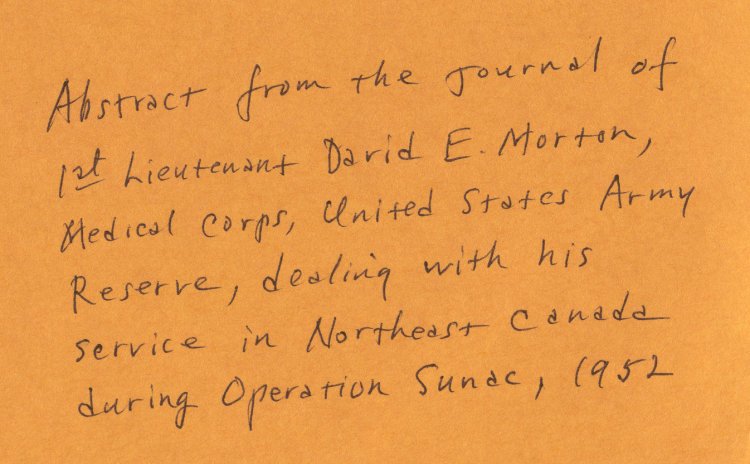 Abstract from the journal of
1st Lieutenant David E. Morton,
Medical Corps, United States Army
Reserve, dealing with his
service in Northeast Canada
during Operation Sunac, 1952